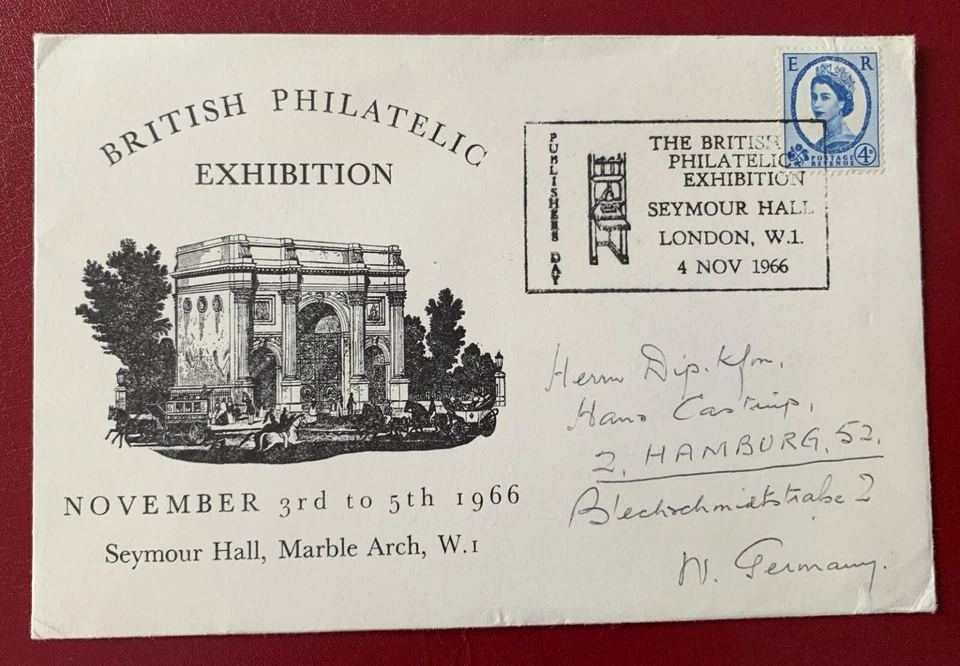 BRITISH PHILATELIC
EXHIBITION
NOVEMBER 3rd to 5th 1966
Seymour Hall, Marble Arch, W.1
E R
POSTAGE
REVENUE
4D
PUBLISHERS DAY
THE BRITISH
PHILATELIC
EXHIBITION
SEYMOUR HALL
LONDON, W.1.
4 NOV 1966
Herrn Dip. Kfm,
Hans
2, HAMBURG, 52,
Blechschmidtstrabe 2
W. Germany.